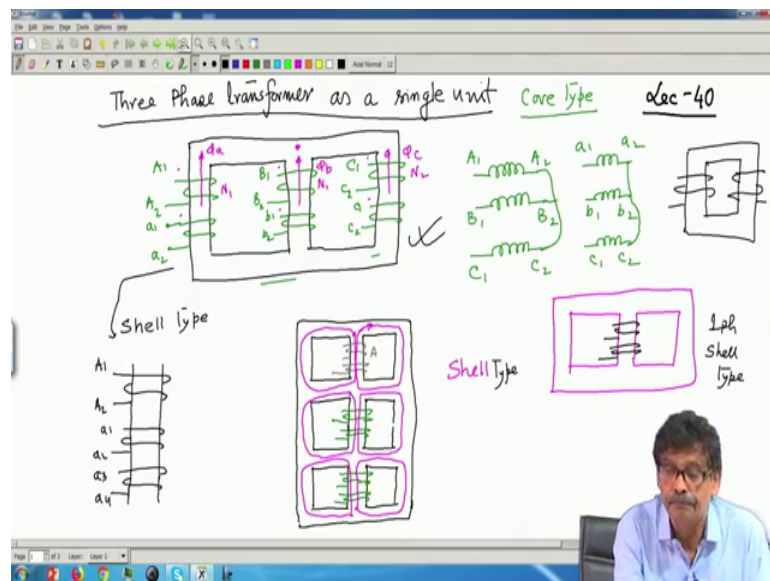 Journal
File Edit View Page Tools Options Help
Arial Normal 12
Three Phase transformer as a single unit Core Type Lec-40
A1 Φa B1 Φb C1 Φc
N1 N1 N2
A2 B2 C2
a1 b1 a
a2 A2 C2
A1 A2 a1 a2
B1 B2 b1 b2
C1 C2 c1 c2
Shell Type
A1
A2
a1
a2
a3
a4
A
Shell Type
1ph
Shell
Type
Page 1 of 3 Layer: Layer 1